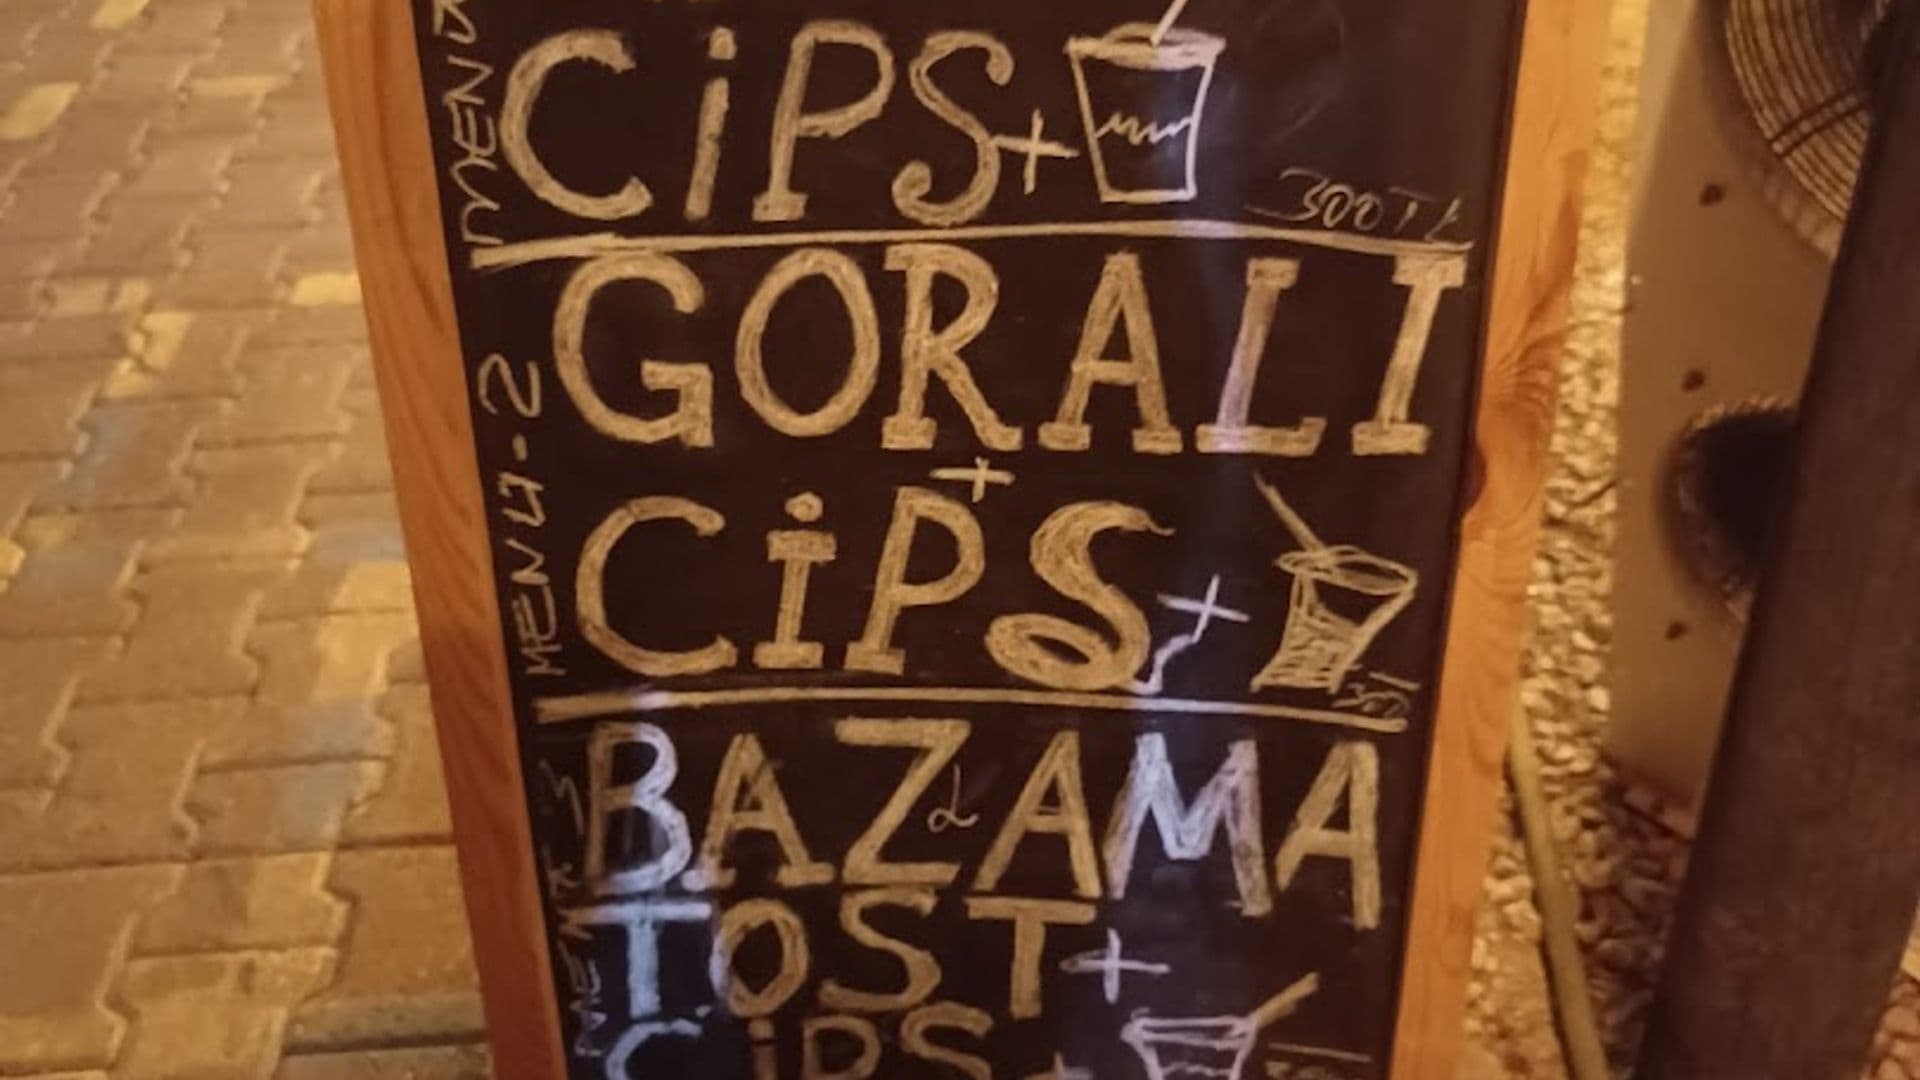 CİPS+
300TL
MENU-2
GORALI
+
CİPS+
300
BAZAMA
TOST+
CİPS+